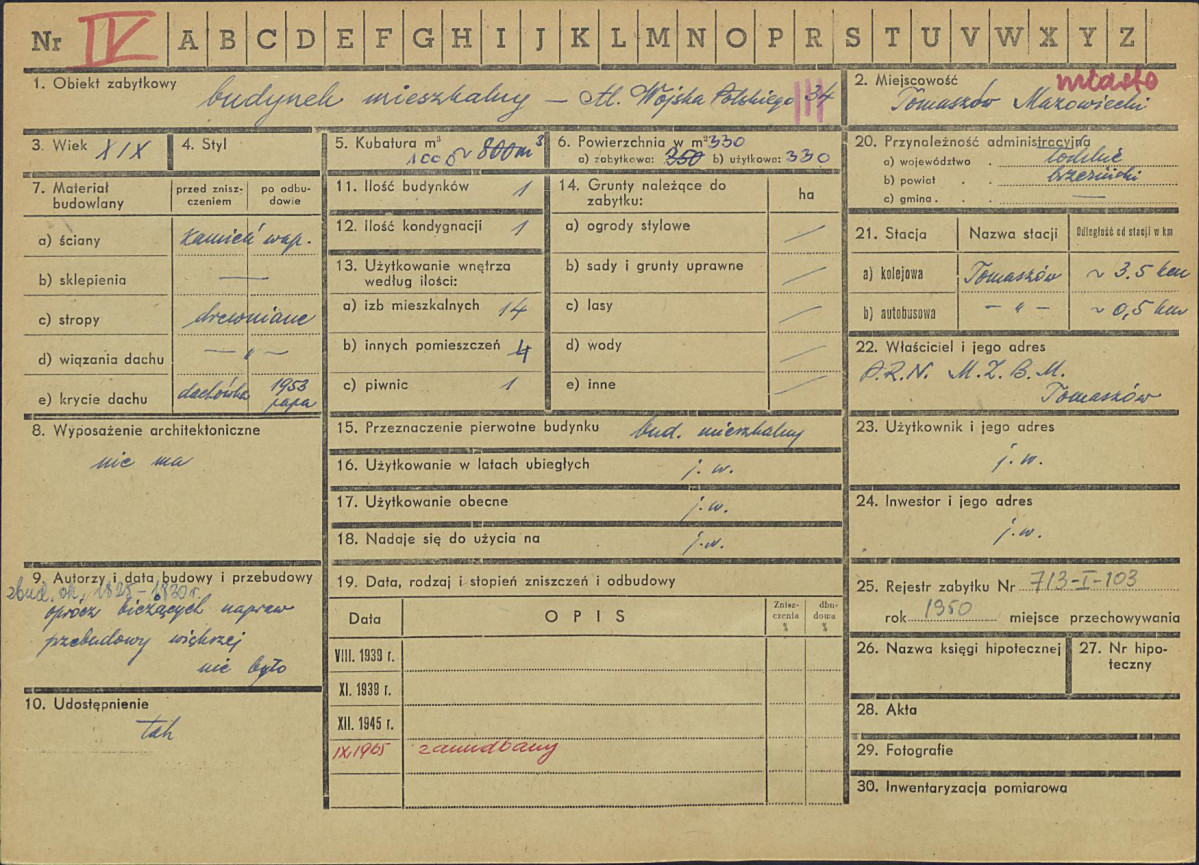 Nr IV A B C D E F G H I J K L M N O P R S T U V W X Y Z
1. Obiekt zabytkowy
budynek mieszkalny – Al. Wojska Polskiego 34
2. Miejscowość miasto
Tomaszów Mazowiecki
3. Wiek XIX
4. Styl
5. Kubatura m³
~ 800 m³
6. Powierzchnia w m² 330
a) zabytkowa: 350 b) użytkowa: 330
7. Materiał budowlany
przed zniszczeniem
po odbudowie
a) ściany kamień wap.
b) sklepienia —
c) stropy drewniane
d) wiązania dachu — „ —
e) krycie dachu dachówka 1953 papa
8. Wyposażenie architektoniczne
nie ma
9. Autorzy i data budowy i przebudowy
zbud. ok. 1825–1830 r.
oprócz bieżących napraw
przebudowy większej
nie było
10. Udostępnienie
tak
11. Ilość budynków 1
12. Ilość kondygnacji 1
13. Użytkowanie wnętrza
według ilości:
a) izb mieszkalnych 14
b) innych pomieszczeń 4
c) piwnic 1
14. Grunty należące do
zabytku: ha
a) ogrody stylowe /
b) sady i grunty uprawne /
c) lasy /
d) wody /
e) inne /
15. Przeznaczenie pierwotne budynku bud. mieszkalny
16. Użytkowanie w latach ubiegłych j. w.
17. Użytkowanie obecne j. w.
18. Nadaje się do użycia na j. w.
19. Data, rodzaj i stopień zniszczeń i odbudowy
Data OPIS Zniszczenia % dbudowa %
VIII. 1939 r.
XI. 1939 r.
XII. 1945 r.
IX 1965 zaniedbany
20. Przynależność administracyjna
a) województwo . łódzkie
b) powiat . . brzeziński
c) gmina . . —
21. Stacja Nazwa stacji Odległość od stacji w km
a) kolejowa Tomaszów ~ 3.5 km
b) autobusowa — „ — ~ 0,5 km
22. Właściciel i jego adres
P.R.N. M.Z.B.M.
Tomaszów
23. Użytkownik i jego adres
j. w.
24. Inwestor i jego adres
j. w.
25. Rejestr zabytku Nr 713-I-103
rok 1950 miejsce przechowywania
26. Nazwa księgi hipotecznej
27. Nr hipoteczny
28. Akta
29. Fotografie
30. Inwentaryzacja pomiarowa